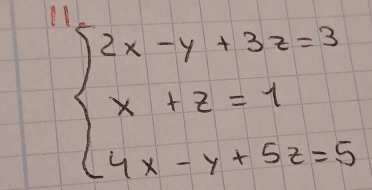 11.
2x - y + 3z = 3
x + z = 1
4x - y + 5z = 5